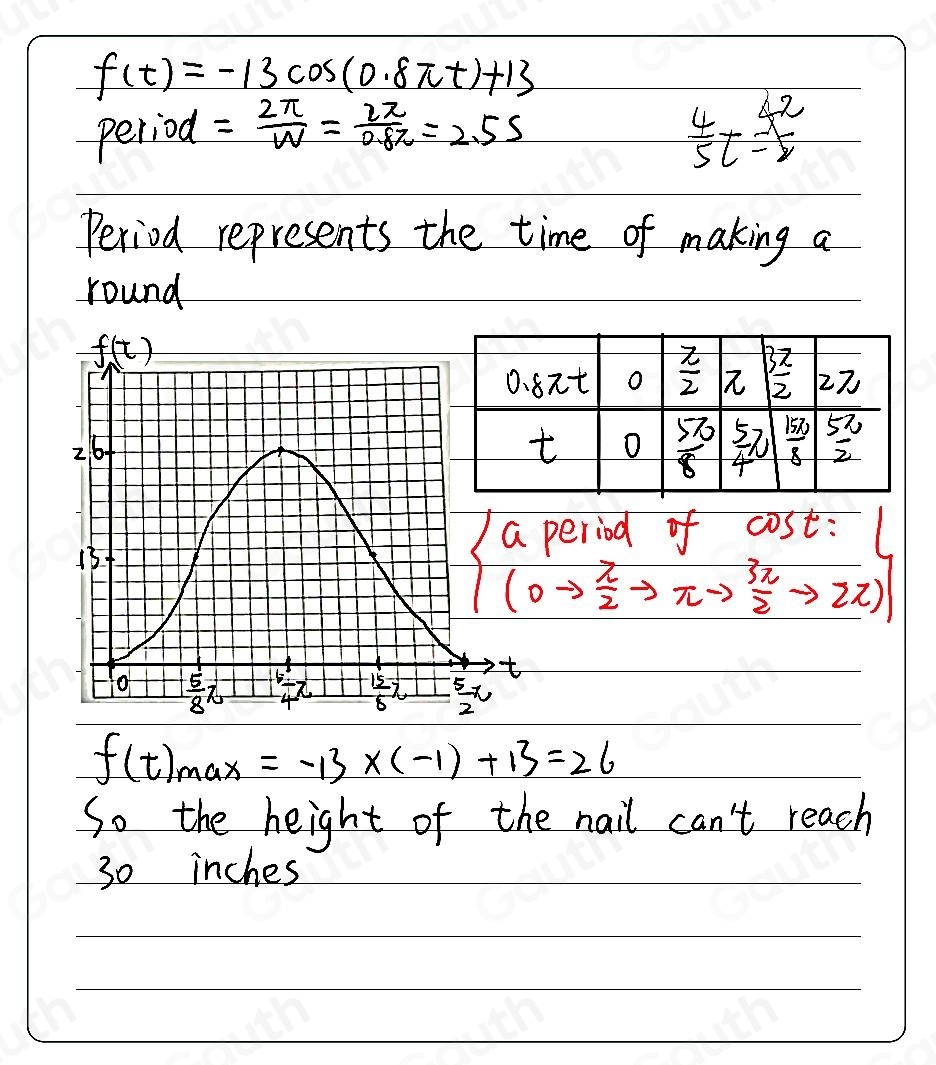 f(t) = -13 cos(0.8πt)+13
period = 2π/W = 2π/0.8π = 2.5s
4/5 t = 4π/2
Period represents the time of making a
round
f(t)
26
13
0 5/8π 5/4π 15/8π 5/2π t
0.8πt 0 π/2 π 3π/2 2π
t 0 5π/8 5/4π 15π/8 5π/2
{a period of cost:
(0→π/2→π→3π/2→2π)}
f(t)max = -13×(-1)+13=26
So the height of the nail can't reach
30 inches
Gauth